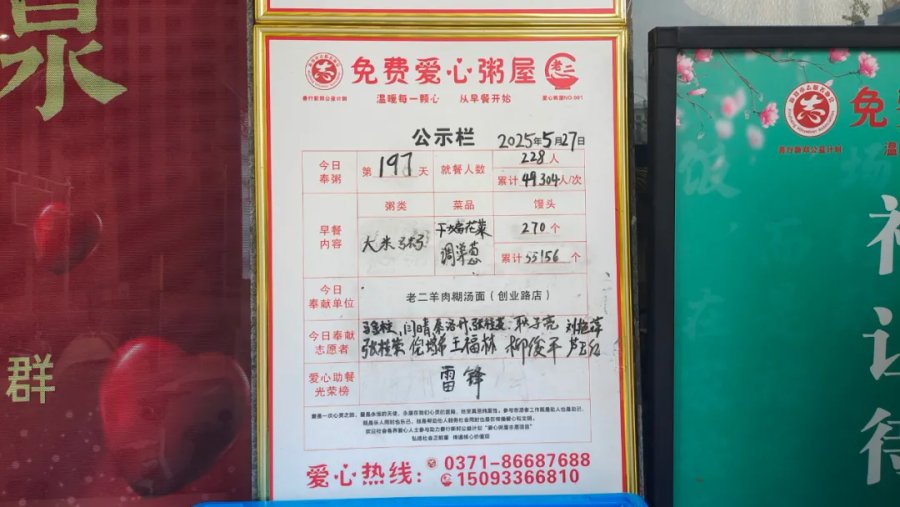 泉
群
免费爱心粥屋
老二
志
善行新郑公益计划
温暖每一颗心 从早餐开始
爱心粥屋NO·001
公示栏
2025年5月27日
今日奉粥
第197天
就餐人数
228人
累计49304人/次
早餐内容
粥类
菜品
馒头
大米粥
干煸花菜
调洋葱
270个
累计55156个
今日奉献单位
老二羊肉糊汤面（创业路店）
今日奉献志愿者
闫晴 张桂英 耿子亮 刘艳萍
张桂荣 王福林 柳俊平
爱心助餐光荣榜
雷锋
弘扬社会正能量 传递核心价值观
爱心热线：
0371-86687688
15093366810
志
善行新郑公益计划
免
温